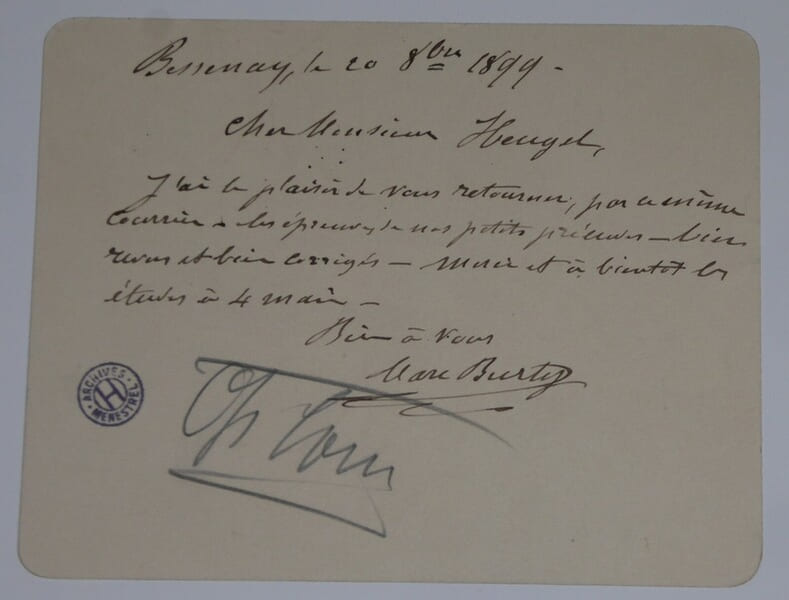 Bessenay, le 20 8bre 1899 -
Cher Monsieur Heugel,
J'ai le plaisir de vous retourner, par ce même
courrier - les épreuves de nos petits préludes - bien
revus et bien corrigés - Merci et à bientôt les
études à 4 main -
Bien à vous
Marc Burty
ARCHIVES
H
MENESTREL